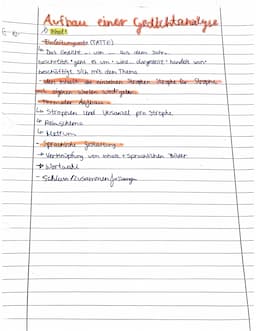 Aufbau einer Gedichtanalyse
1) Inhalt
- Einleitungssatz (TATTE)
↳ Das Gedicht ... von ... aus dem Jahr ...
beschreibt / geht es um / wird dargestellt / handelt von /
beschäftigt sich mit dem Thema
- den Inhalt der einzelnen Strophen Strophe für Strophe
mit eigenen Worten wiedergeben
- Formaler Aufbau
↳ Strophen und Versanzahl pro Strophe
↳ Reimschema
↳ Metrum
- Sprachliche Gestaltung
→ Verknüpfung von Inhalt + sprachlichen Bilder
→ Wortwahl
- Schluss / Zusammenfassung